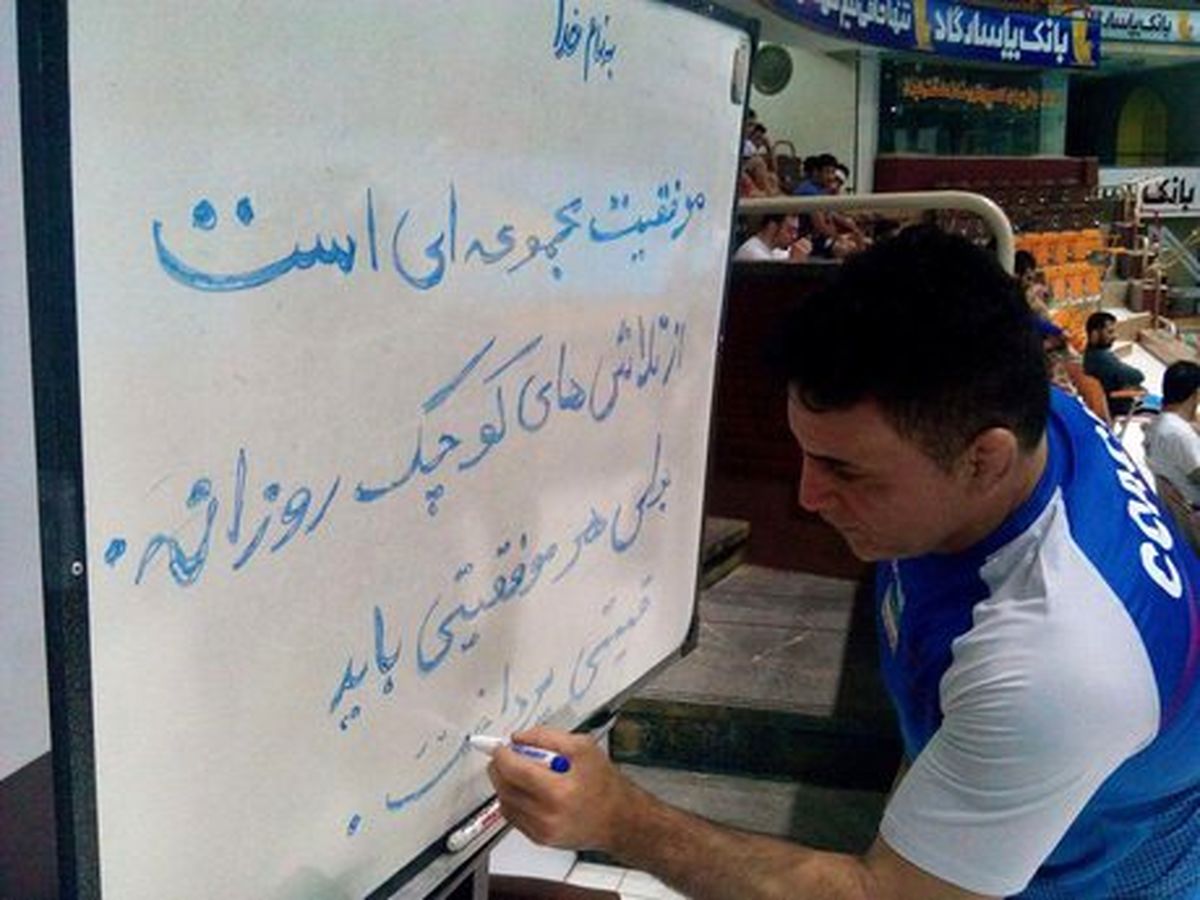 بنام خدا
موفقیت مجموعه ای است
از تلاش های کوچک روزانه.
برای هر موفقیتی باید
قیمتی پرداخت.
بانک پاسارگاد
بانک پاسارگاد
بانک
COACH